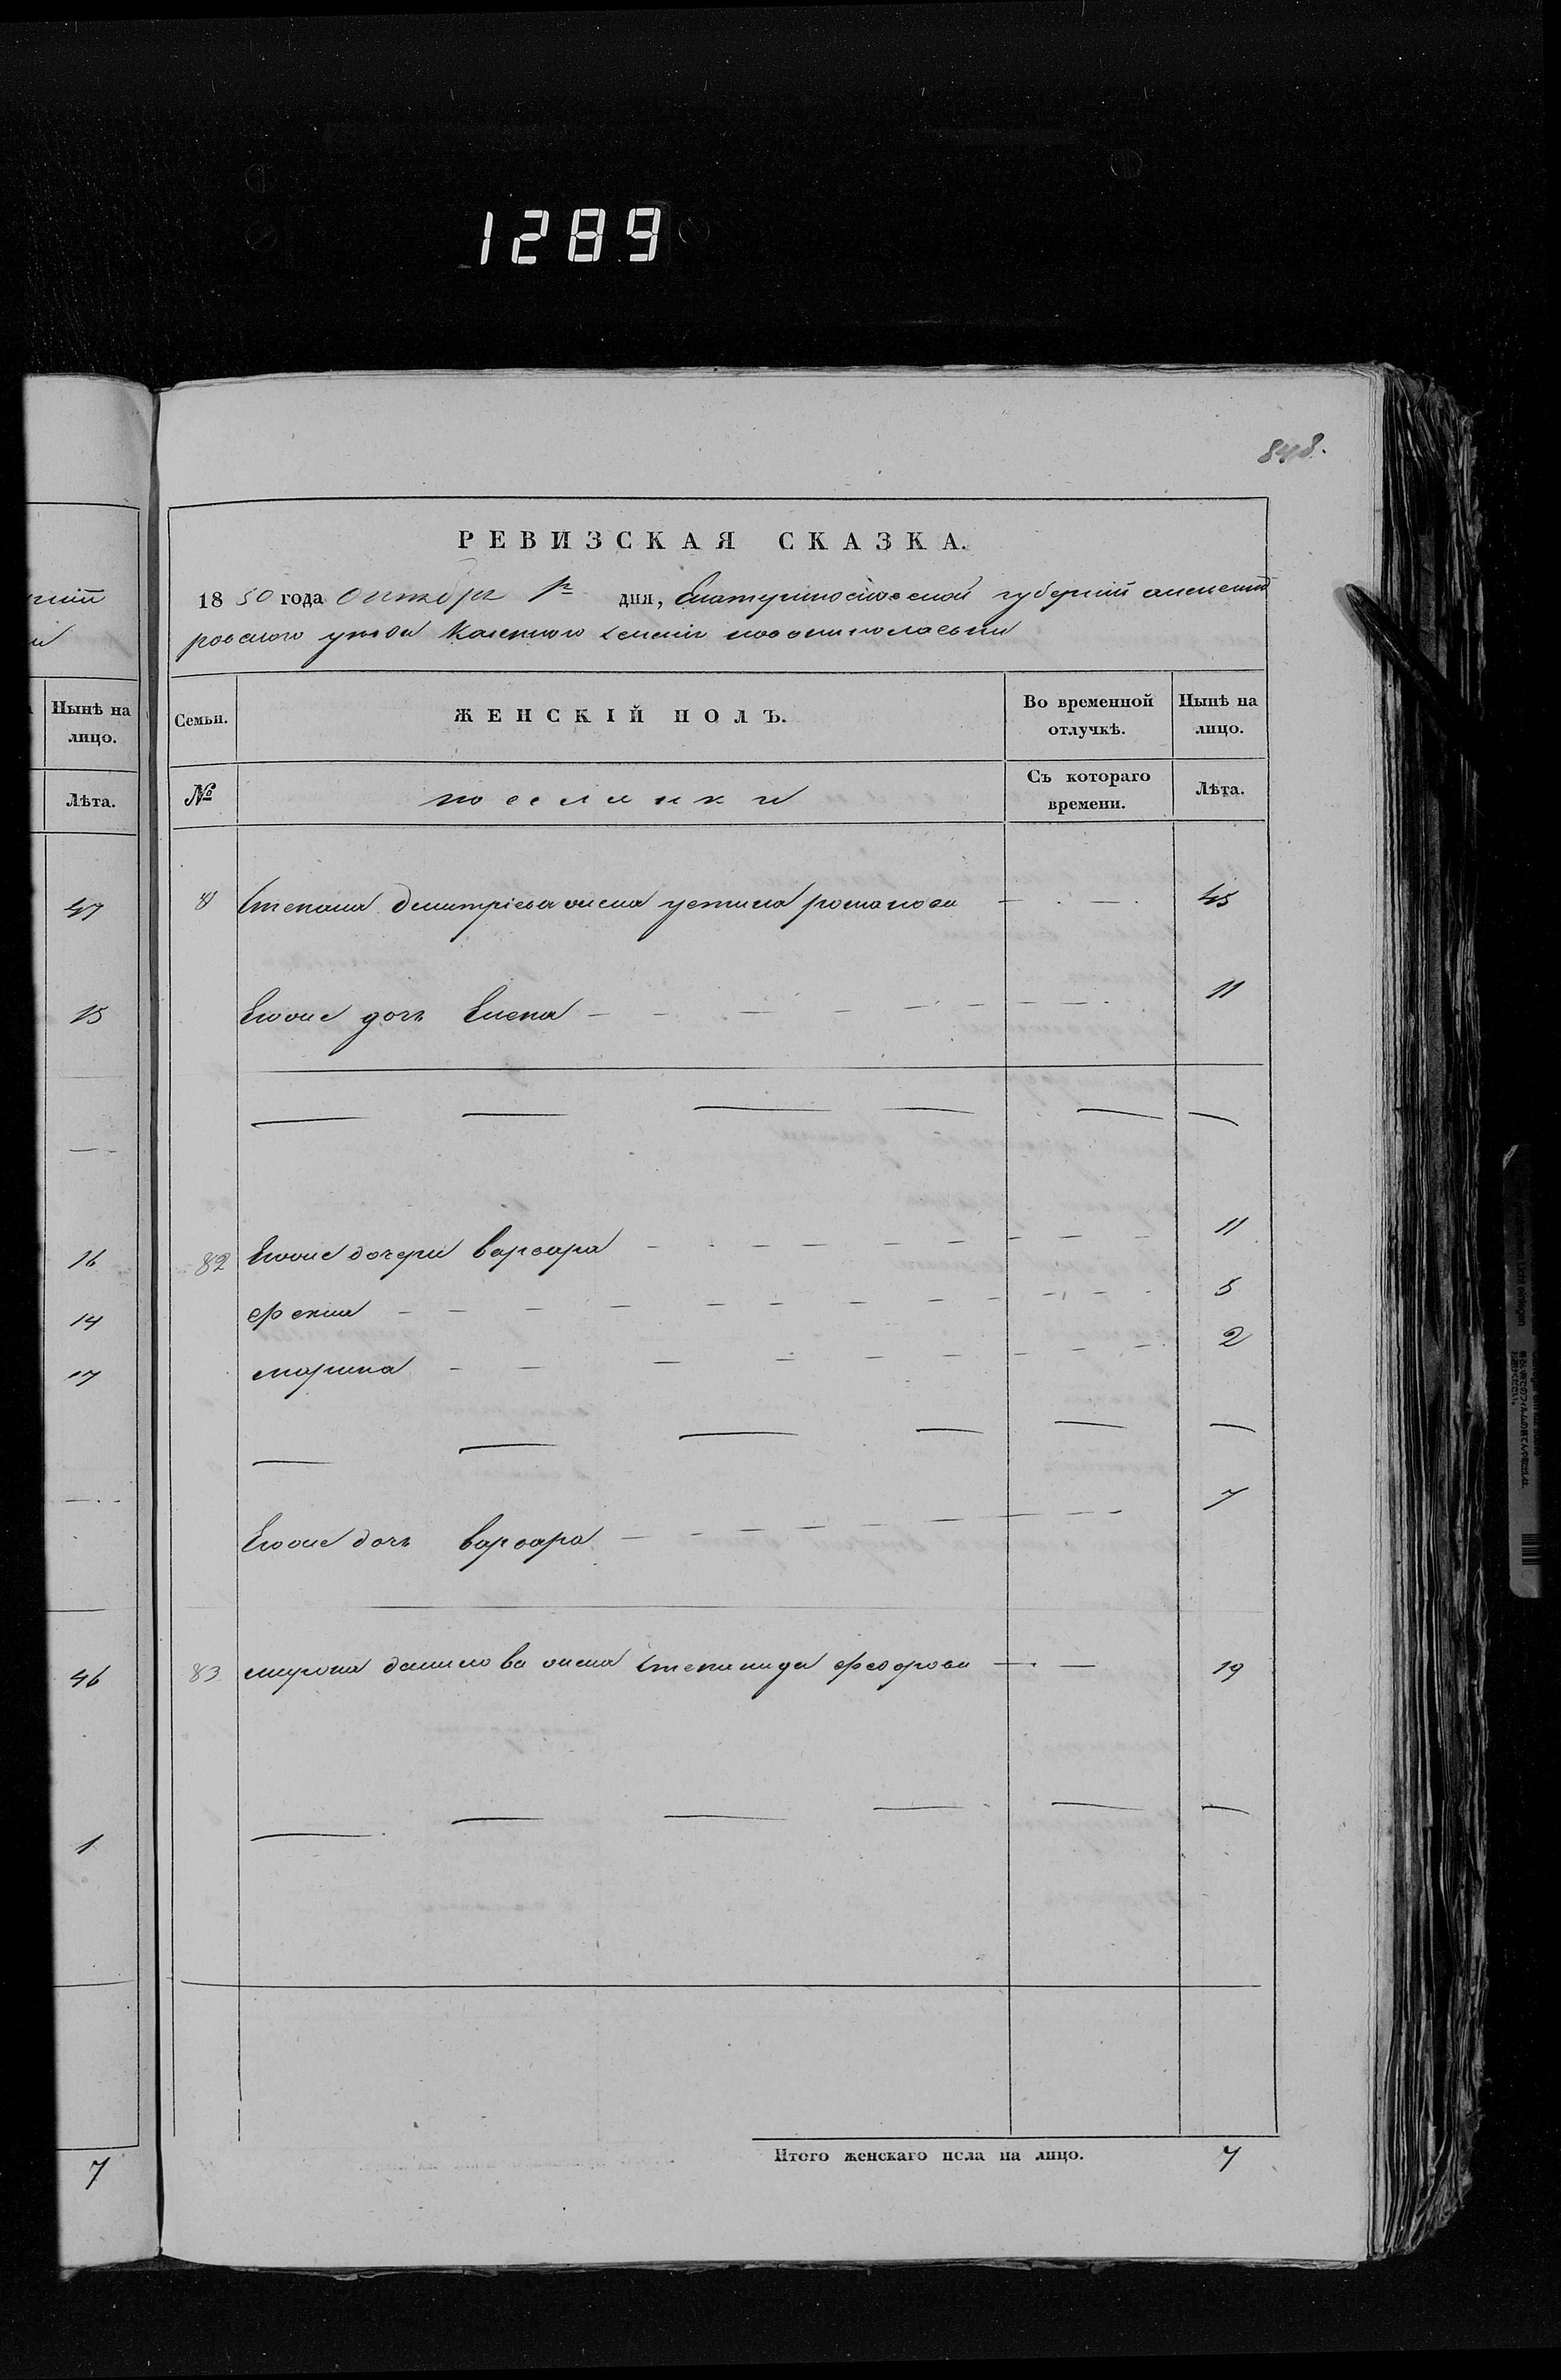 1289
848.
РЕВИЗСКАЯ СКАЗКА.
1850 года Октября 1го дня, Екатеринославской губерніи александ
ровского уезда Казенного селенія новониколаевки
Нынѣ на лицо.
Лѣта.
Семьи.
ЖЕНСКІЙ ПОЛЪ.
Во временной отлучкѣ.
Нынѣ на лицо.
№
поселянки
Съ котораго времени.
Лѣта.
47
15
16
14
17
46
1
7
8 Степана дмитріева жена устина романова — . — . 45
Еговые дочь Елена — — — — — — — — 11
82 Еговые дочери варвара — — — — — — — — 11
фекла — — — — — — — — — 5
марина — — — — — — — — — 2
Еговые дочь варвара — — — — — — — — 7
83 мирона данилова жена Степанида федорова — . — 19
Итого женскаго пола на лицо. 7